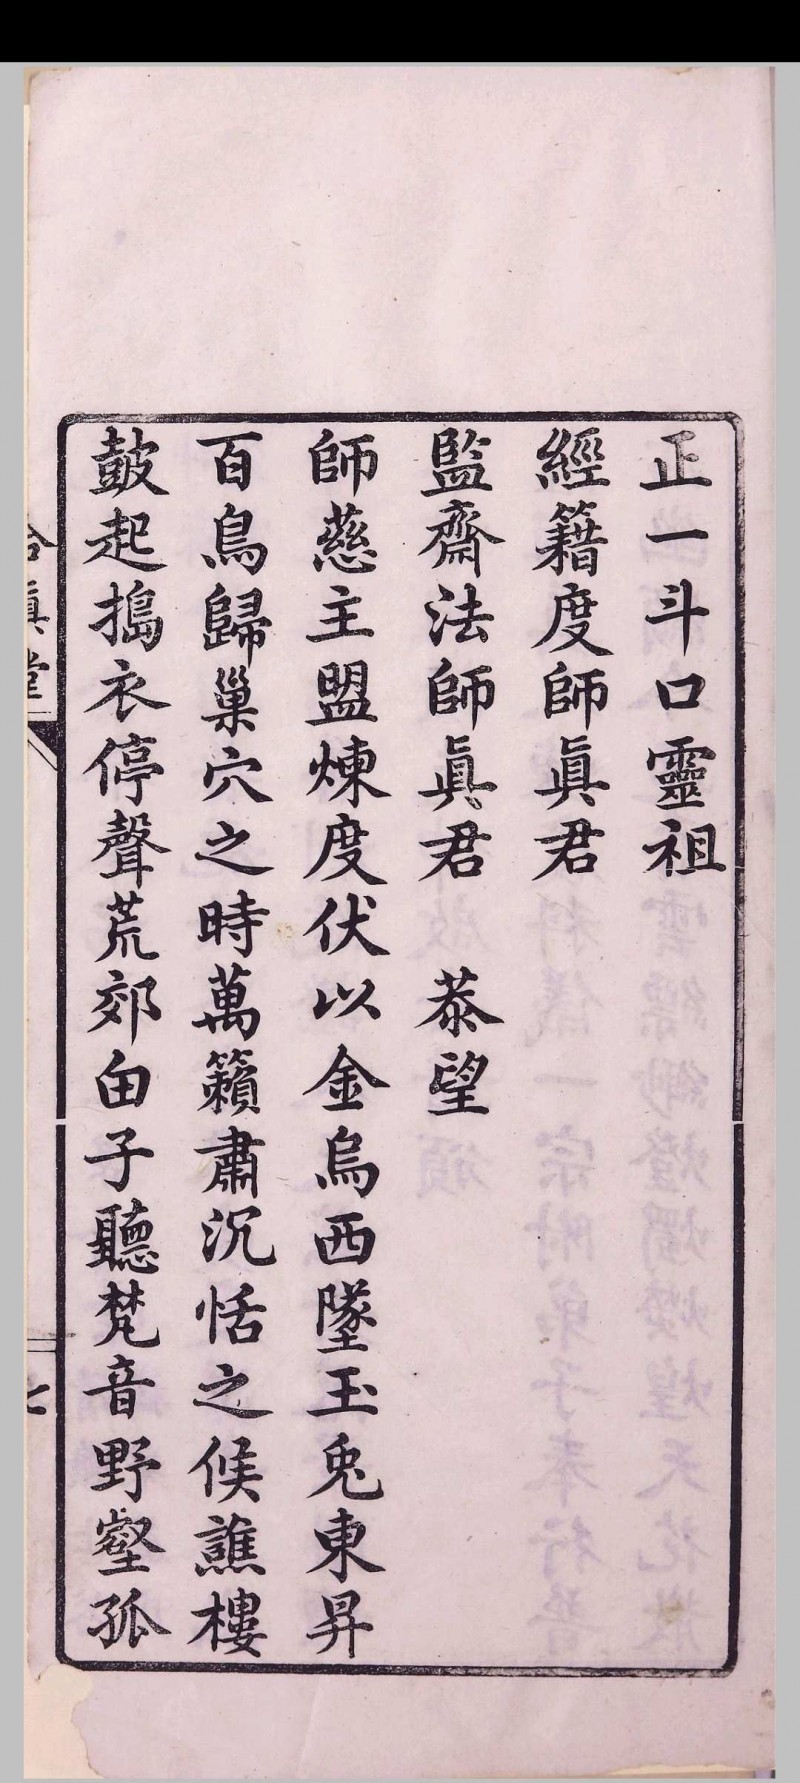 正一斗口靈祖
經籍度師眞君
監齋法師眞君　恭望
師慈主盟煉度伏以金烏西墜玉兎東昇
百鳥歸巢穴之時萬籟肅沉恬之候譙樓
皷起搗衣停聲荒郊田子聽梵音野壑孤
合眞堂
七